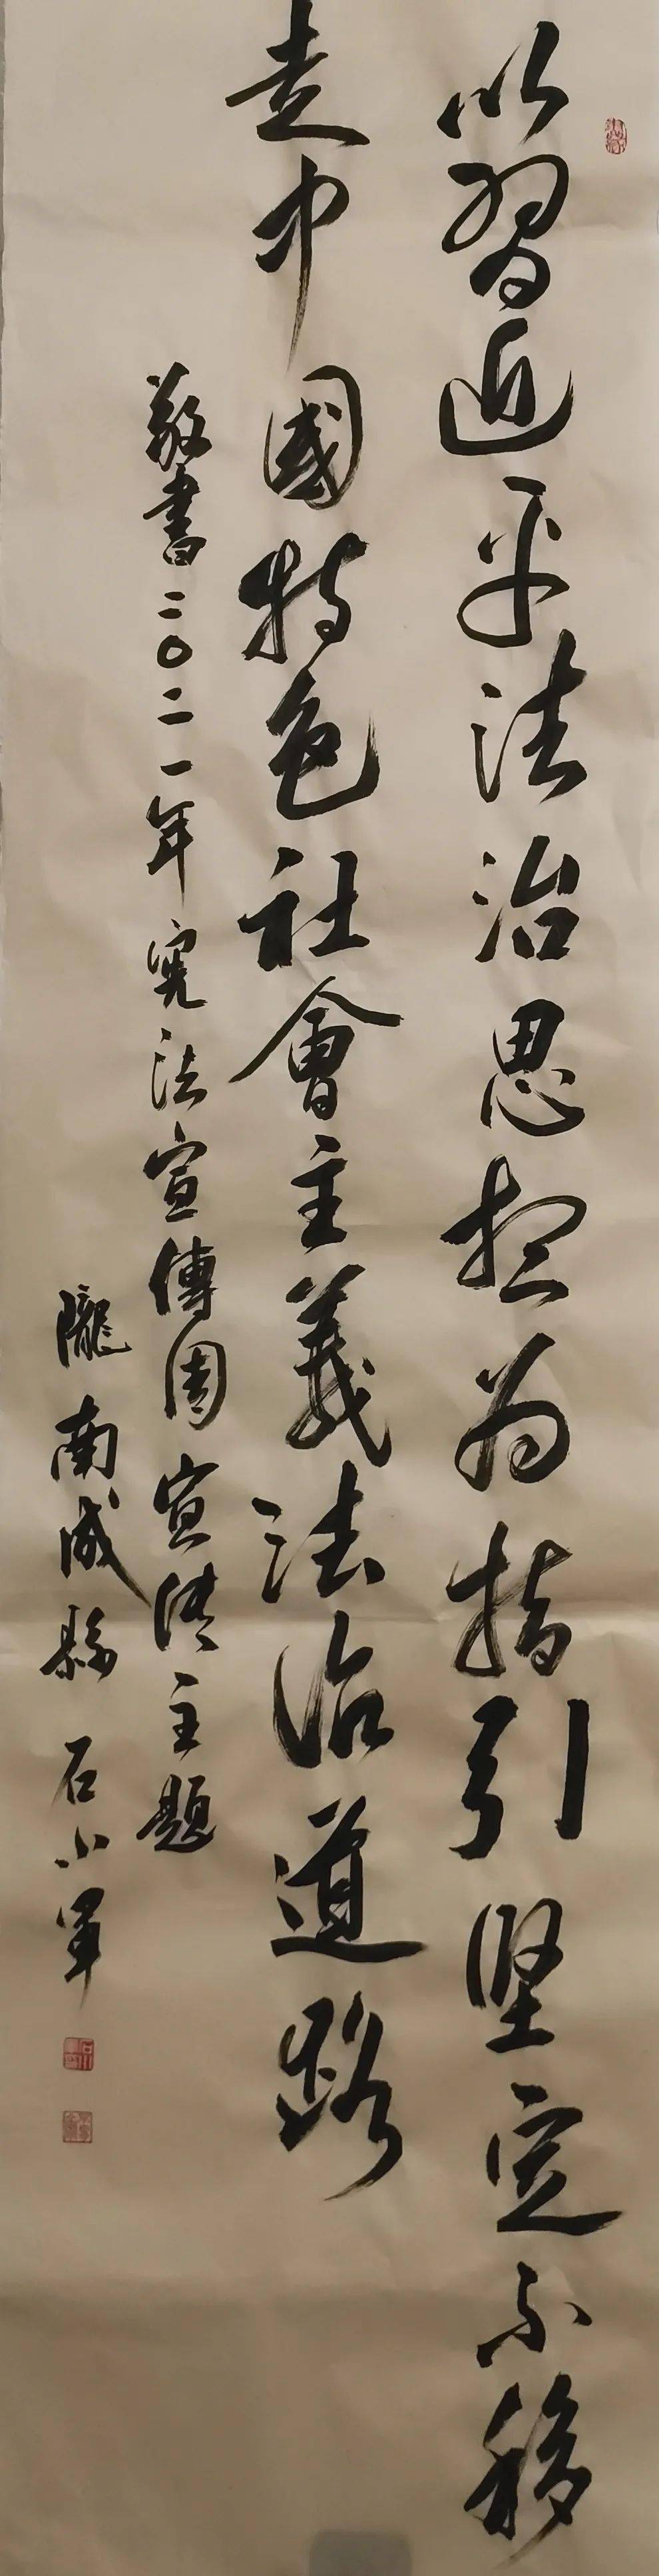 以習近平法治思想为指引坚定不移
走中國特色社會主義法治道路
敬書二〇二一年宪法宣傳周宣传主题
隴南成縣 石小軍